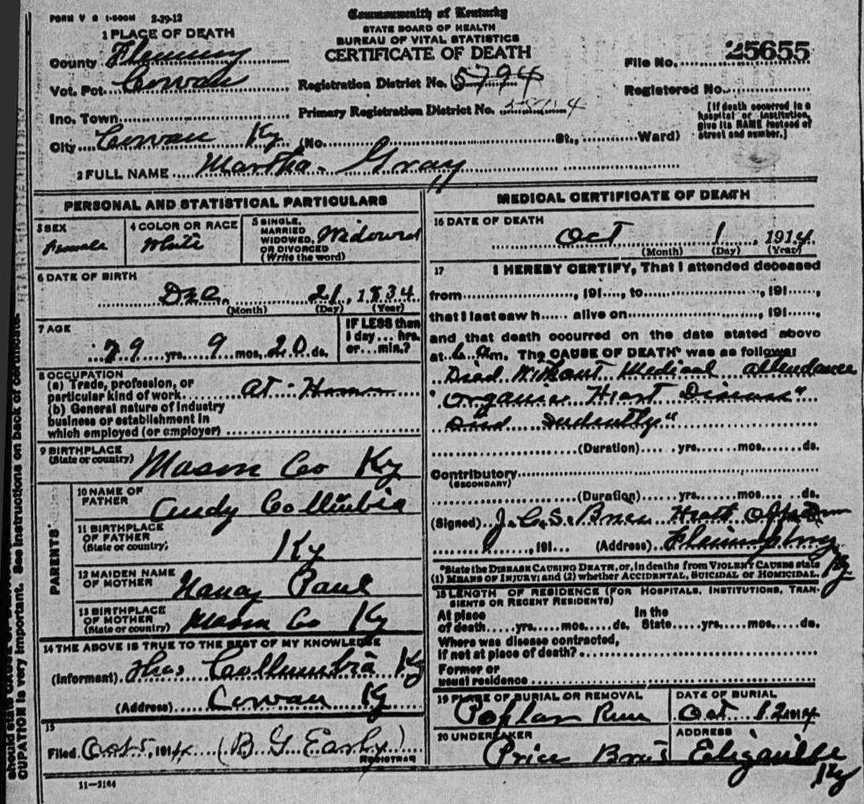 FORM V S 1-500M 2-29-12
Commonwealth of Kentucky
STATE BOARD OF HEALTH
BUREAU OF VITAL STATISTICS
CERTIFICATE OF DEATH
1 PLACE OF DEATH
County Fleming
Vot. Pct. Cowan
Inc. Town
City Cowan Ky (No. St., Ward)
Registration District No. 5794
Primary Registration District No.
File No. 25655
Registered No.
[If death occurred in a hospital or institution, give its NAME instead of street and number.]
2 FULL NAME Martha Gray
PERSONAL AND STATISTICAL PARTICULARS
3 SEX Female
4 COLOR OR RACE White
5 SINGLE, MARRIED WIDOWED, OR DIVORCED (Write the word) Widowed
6 DATE OF BIRTH
Dec. 21, 1834
(Month) (Day) (Year)
7 AGE
79 yrs. 9 mos. 20 ds.
IF LESS than 1 day... hrs. or... min.?
8 OCCUPATION
(a) Trade, profession, or particular kind of work At Home
(b) General nature of industry
business or establishment in
which employed (or employer)
9 BIRTHPLACE
(State or country) Mason Co Ky
PARENTS
10 NAME OF FATHER Andy Collumbia
11 BIRTHPLACE OF FATHER (State or country) Ky
12 MAIDEN NAME OF MOTHER Nancy Paul
13 BIRTHPLACE OF MOTHER (State or country) Mason Co Ky
14 THE ABOVE IS TRUE TO THE BEST OF MY KNOWLEDGE
(Informant) Thos Collumbia Ky
(Address) Cowan Ky
15
Filed Oct 5, 1914 (B G Early)
REGISTRAR
11-3184
MEDICAL CERTIFICATE OF DEATH
16 DATE OF DEATH
Oct 1, 1914
(Month) (Day) (Year)
17 I HEREBY CERTIFY, That I attended deceased
from , 191 , to , 191 ,
that I last saw h alive on , 191 ,
and that death occurred on the date stated above
at 6 am. The CAUSE OF DEATH* was as follows:
Died Without Medical attendance
"Organic Heart Disease"
Died Sudently"
(Duration) yrs. mos. ds.
Contributory
(SECONDARY)
(Duration) yrs. mos. ds.
(Signed) J.C.S. Health Officer
, 191 (Address) Flemingsburg Ky
*State the DISEASE CAUSING DEATH, or, in deaths from VIOLENT CAUSES state
(1) MEANS OF INJURY; and (2) whether ACCIDENTAL, SUICIDAL OR HOMICIDAL.
18 LENGTH OF RESIDENCE (FOR HOSPITALS, INSTITUTIONS, TRANSIENTS OR RECENT RESIDENTS)
At place of death yrs. mos. ds. In the State yrs. mos. ds.
Where was disease contracted,
if not at place of death?
Former or
usual residence
19 PLACE OF BURIAL OR REMOVAL Poplar Run
DATE OF BURIAL Oct 1914
20 UNDERTAKER Price Bros
ADDRESS Ky
CUPATION is very important. See instructions on back of certificate.